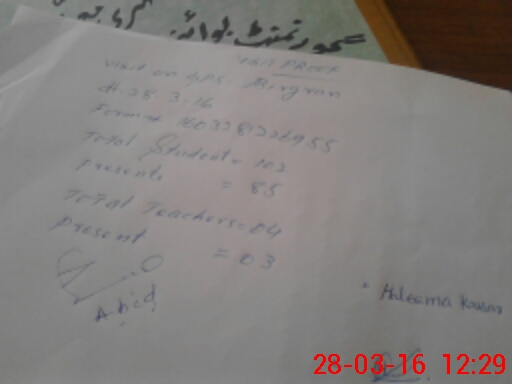 گورنمنٹ بوائز
VISIT PROOF
Visit on GPS. Mirgran
dt. 28 3-16
Format 1603281226955
Total Students = 102
Presents = 85
Total Teachers = 04
Present = 03
Abid
Haleema Kousar
28-03-16 12:29